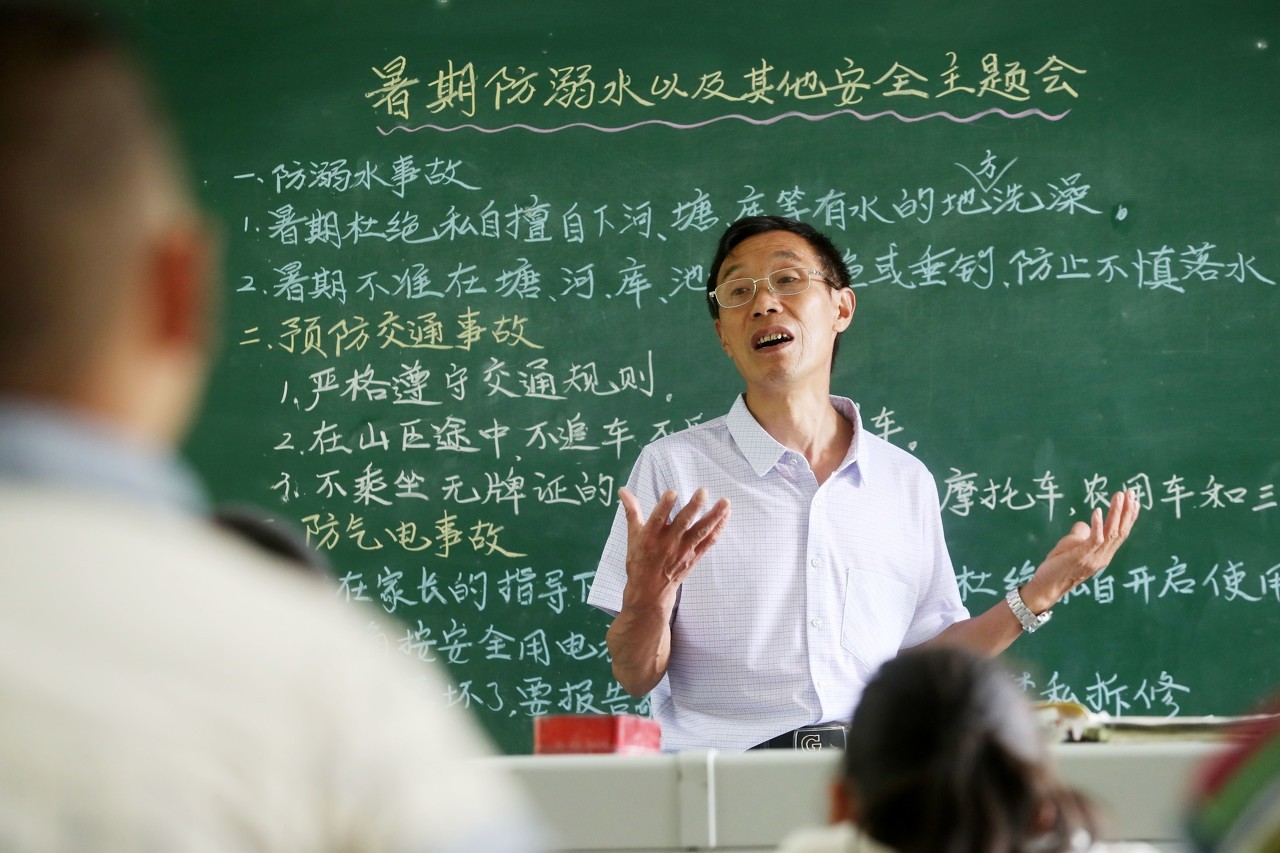 暑期防溺水以及其他安全主题会
一、防溺水事故
方
1.暑期杜绝私自擅自下河、塘、库等有水的地洗澡。
2.暑期不准在塘、河、库、池 或垂钓、防止不慎落水
二、预防交通事故
1.严格遵守交通规则。
2.在山区途中,不追车 不 车。
3.不乘坐无牌证的 摩托车,农用车和三
防气电事故
在家长的指导下 杜绝私自开启使用
按安全用电
坏了,要报告 私拆修
G